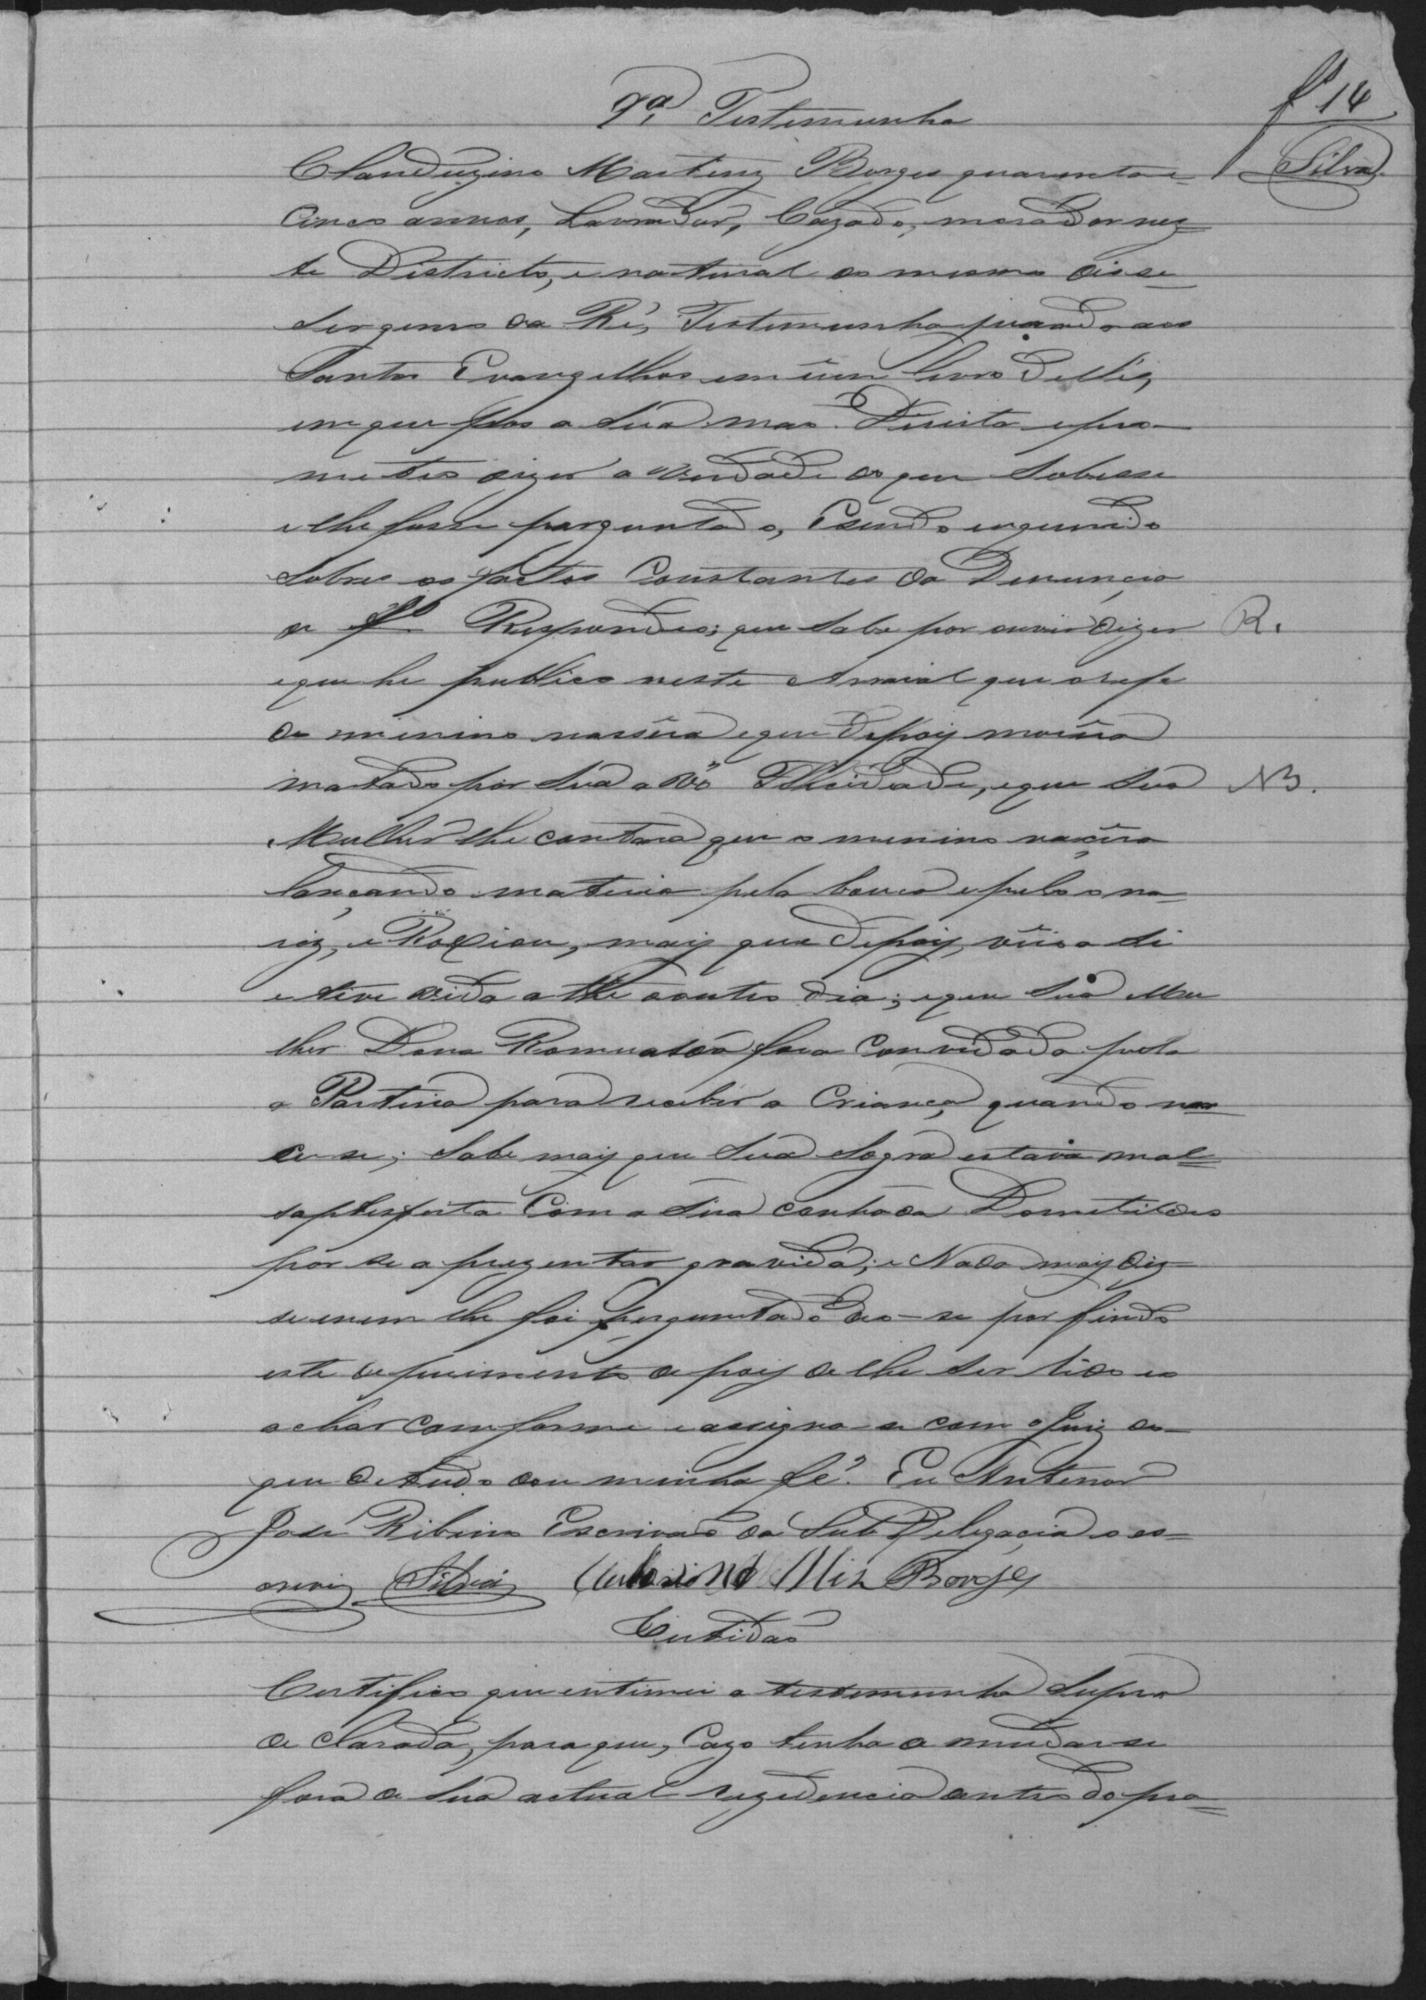 fl 14
Silva
7ª Testemunha
Clauduzino Martins Borges quarenta e
Cinco annos, Lavrador, Cazado, morador nez=
te Districto, e natural do mesmo disse
ser genro da Ré, Testemunha jurando aos
Santos Evangelhos em úm livro delles,
em que pos a súa mão Direita e pro-
meteo dizer a verdade do que Sobesse
e lhe fosse perguntado, E sendo inquerido
Sobres os factos Constantes da Denuncia
de fl Respondeo; que sabe por ouvir dizer R.
e que he publico neste Arraial que
o menino nascêra e que depois morrêra
matado por súa avó Filicidade, e que súa NB.
Mulher lhe contara que o menino nacêra
lançando materia pela bouca e pelo na-
riz, e Roxiou, mais que depois, veio a si
e teve vida athe o outro dia; e que súa Mu
lher Dona Romualda fora Convidada pela
a Parteira para receber a Criança, quando na=
ce-se; Sabe mais que súa Sogra estava mal=
satisfeita Com a súa cunhada Domitildes
por se aprezentar gravida; e Nada mais dis-
se e nem lhe foi perguntado deo-se por findo
este depuimento depois de lhe ser lido e o
achar comforme e assigna-se com o Juiz do
que de tudo dou minha fé. Eu Antenor
José Ribeiro Escrivão da Sub Delegacia o es-
crevi Silva Mis Borges
Certidão
Certifico que intimei a testemunha supra
declarada, para que, Cazo tenha de mudar-se
fora de súa actual rezidencia antes do pra=